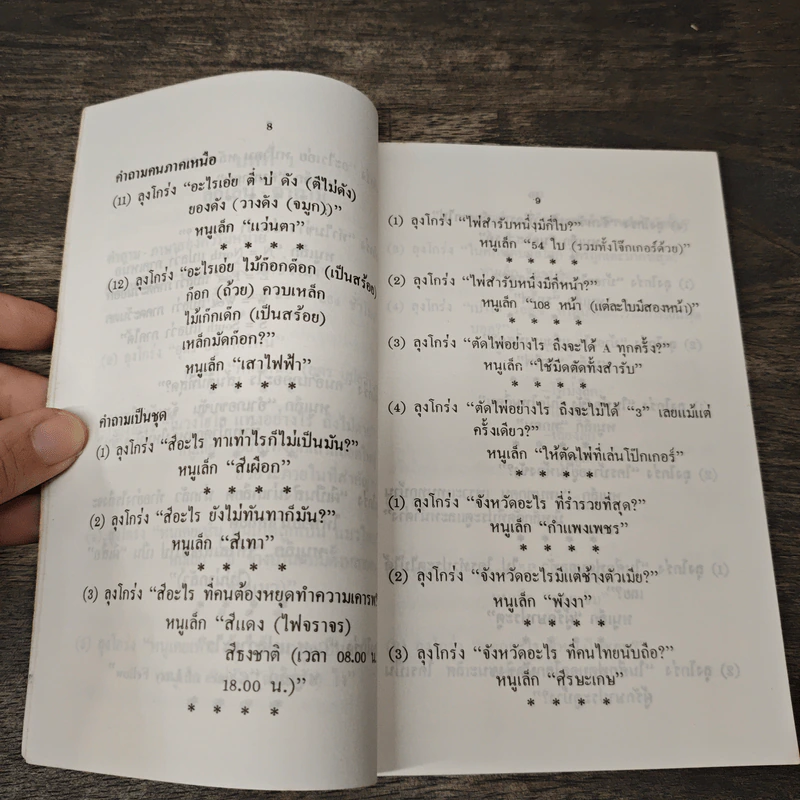 8
คำถามคนภาคเหนือ
(11) ลุงโกร่ง “อะไรเอ่ย ตี่ บ่ ดัง (ตีไม่ดัง)
ยองดัง (วางดัง (จมูก))”
หนูเล็ก “แว่นตา”
* * * *
(12) ลุงโกร่ง “อะไรเอ่ย ไม้ก๊อกด๊อก (เป็นสร้อย)
ก๊อก (ถ้วย) ควบเหล็ก
ไม้เก๊กเด็ก (เป็นสร้อย)
เหล็กมัดก๊อก?”
หนูเล็ก “เสาไฟฟ้า”
* * * *
คำถามเป็นชุด
(1) ลุงโกร่ง “สีอะไร ทาเท่าไรก็ไม่เป็นมัน?”
หนูเล็ก “สีเผือก”
* * * *
(2) ลุงโกร่ง “สีอะไร ยังไม่ทันทาก็มัน?”
หนูเล็ก “สีเทา”
* * * *
(3) ลุงโกร่ง “สีอะไร ที่คนต้องหยุดทำความเคารพ
หนูเล็ก “สีแดง (ไฟจราจร)
สีธงชาติ (เวลา 08.00 น
18.00 น.)”
* * * *
9
(1) ลุงโกร่ง “ไพ่สำรับหนึ่งมีกี่ใบ?”
หนูเล็ก “54 ใบ (รวมทั้งโจ๊กเกอร์ด้วย)”
* * * *
(2) ลุงโกร่ง “ไพ่สำรับหนึ่งมีกี่หน้า?”
หนูเล็ก “108 หน้า (แต่ละใบมีสองหน้า)”
* * * *
(3) ลุงโกร่ง “ตัดไพ่อย่างไร ถึงจะได้ A ทุกครั้ง?”
หนูเล็ก “ใช้มีดตัดทั้งสำรับ”
* * * *
(4) ลุงโกร่ง “ตัดไพ่อย่างไร ถึงจะไม่ได้ “3” เลยแม้แต่
ครั้งเดียว?”
หนูเล็ก “ให้ตัดไพ่ที่เล่นโป๊กเกอร์”
* * * *
(1) ลุงโกร่ง “จังหวัดอะไร ที่ร่ำรวยที่สุด?”
หนูเล็ก “กำแพงเพชร”
* * * *
(2) ลุงโกร่ง “จังหวัดอะไรมีแต่ช้างตัวเมีย?”
หนูเล็ก “พังงา”
* * * *
(3) ลุงโกร่ง “จังหวัดอะไร ที่คนไทยนับถือ?”
หนูเล็ก “ศีรษะเกษ”
* * * *